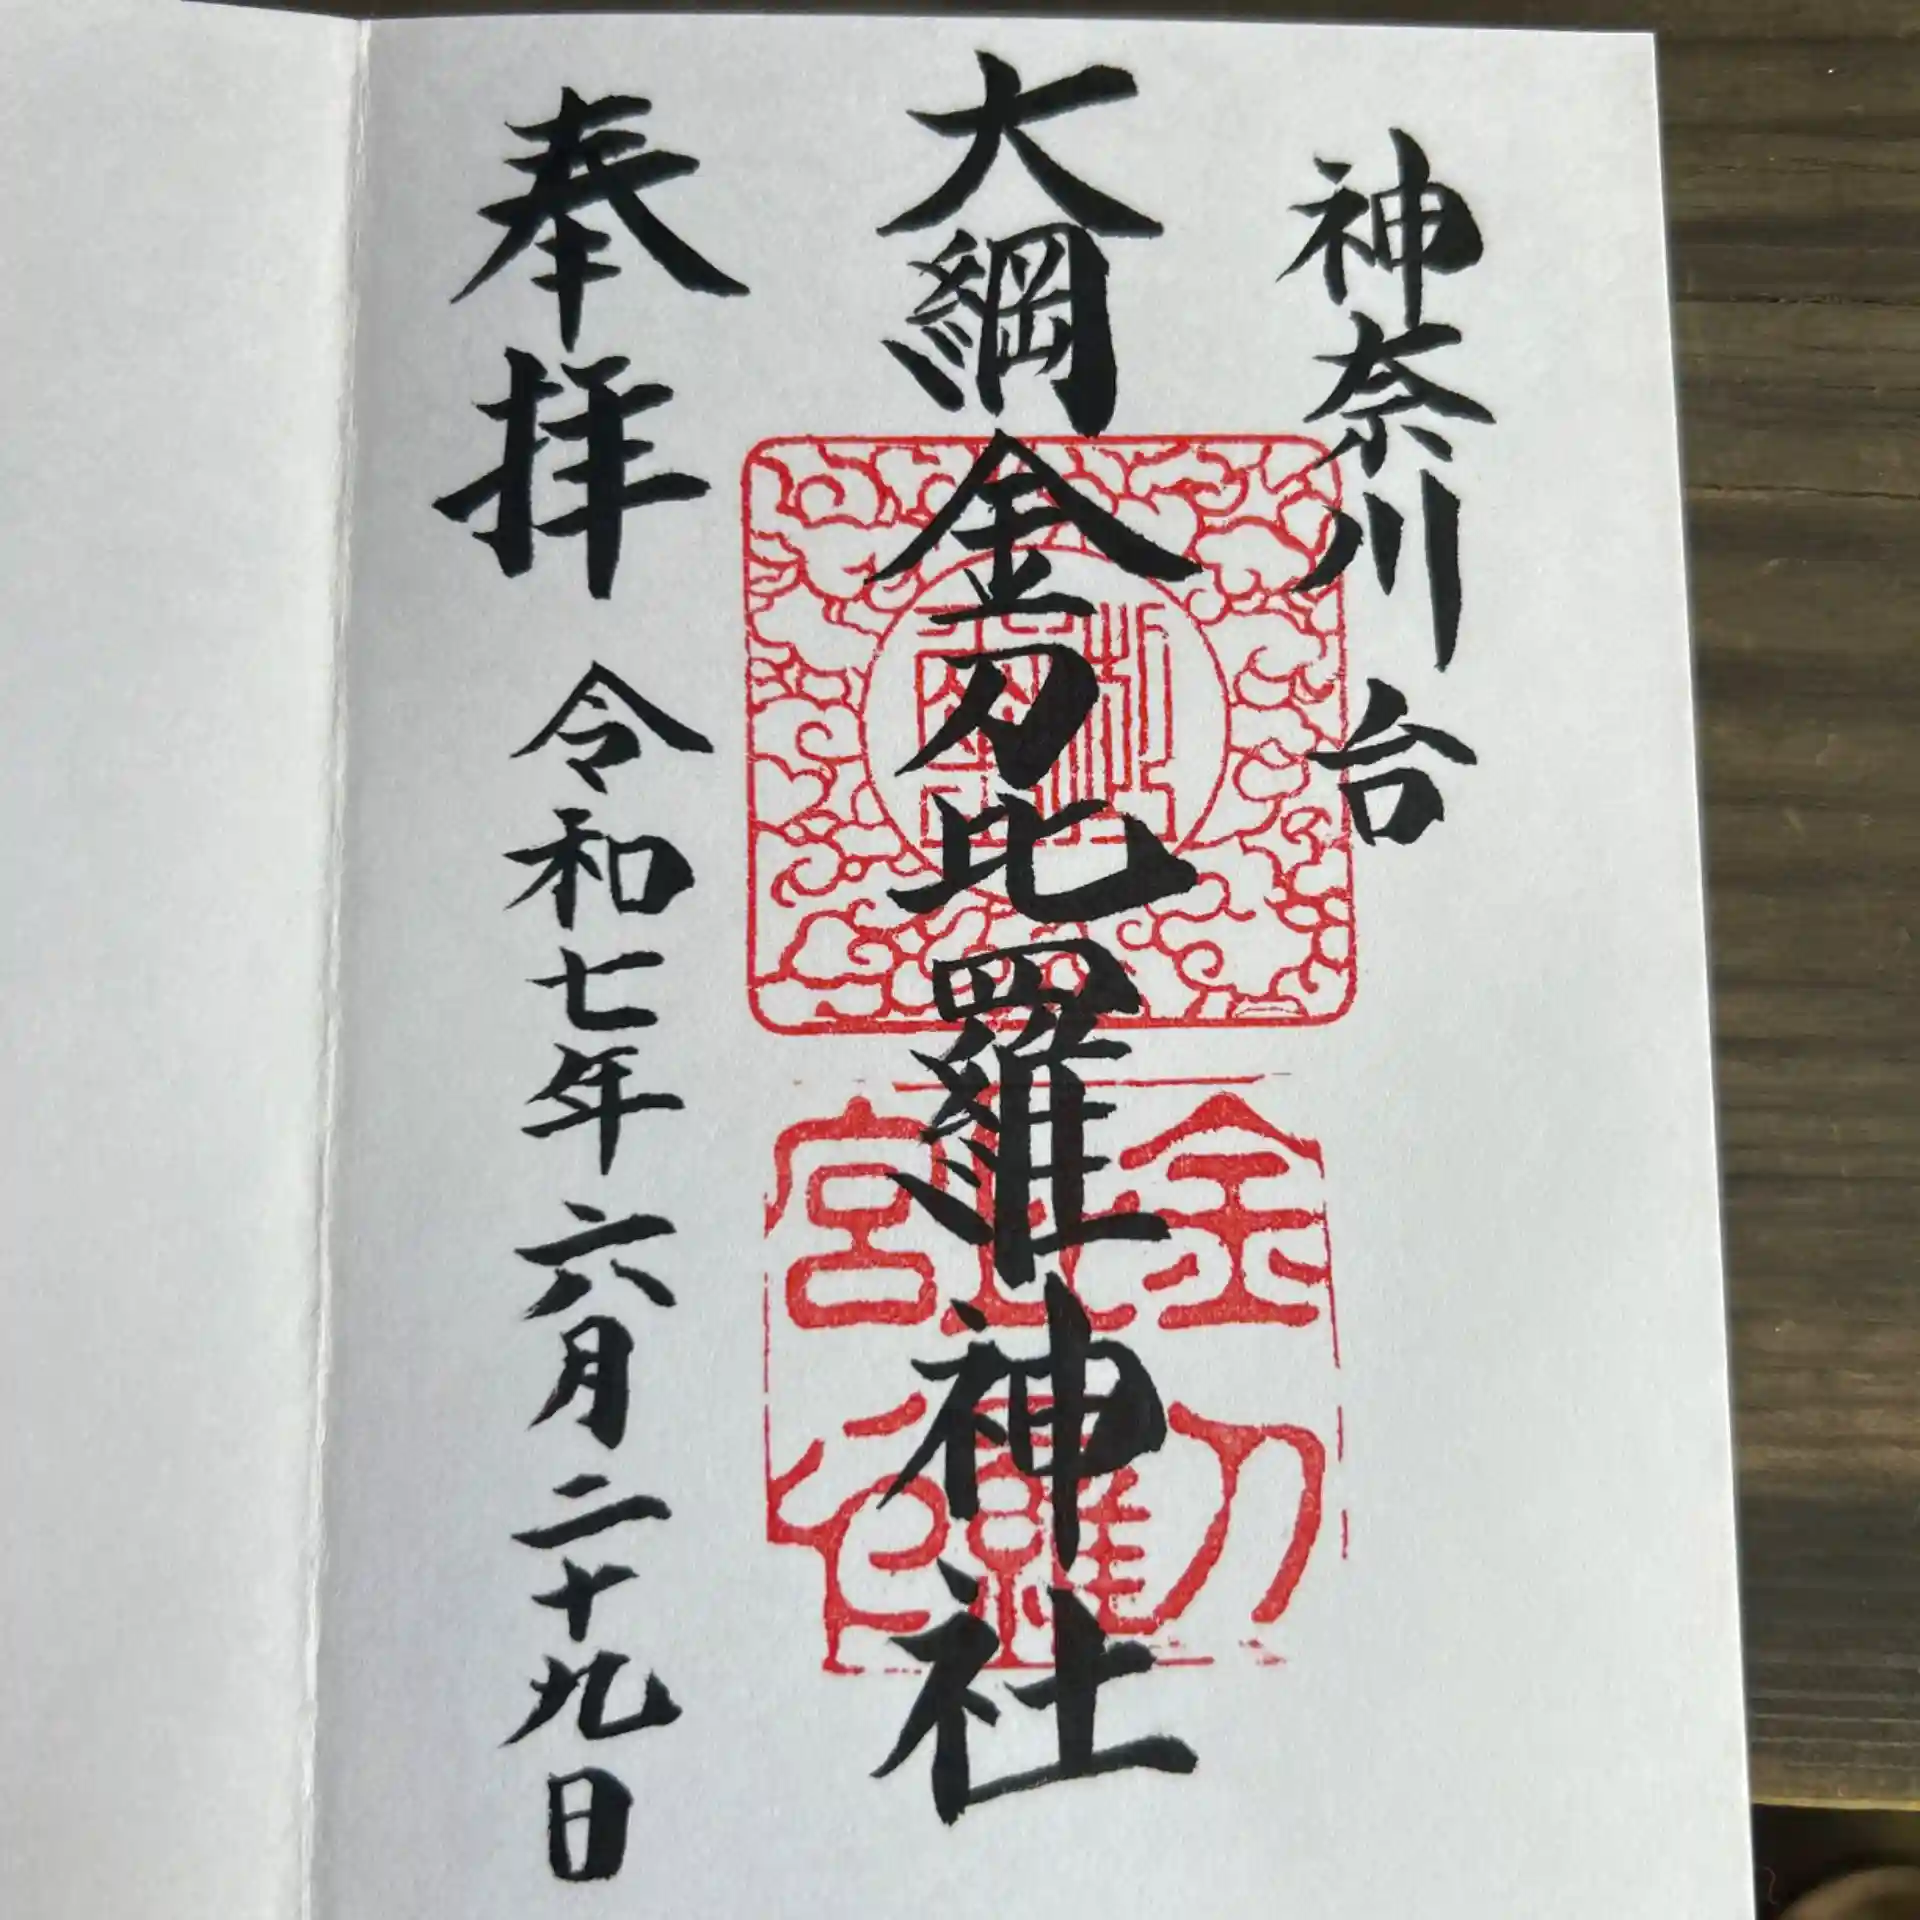 神奈川台
大綱金刀比羅神社
奉拝
令和七年六月二十九日
金刀
比羅
宮